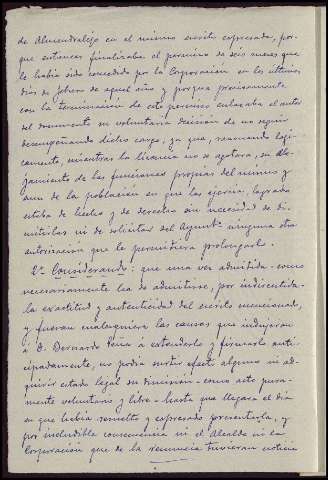 de Almendralejo en el mismo escrito expresada, por-
que entonces finalizaba el permiso de seis meses que
le había sido concedido por la Corporación en los últimos
días de febrero de aquel año y porque precisamente
con la terminación de este permiso enlazaba el autor
del documento su voluntaria decisión de no seguir
desempeñando dicho cargo, ya que, razonando lógi-
camente, mientras la licencia no se agotara, su ale-
jamiento de las funciones propias del mismo y
aun de la población en que las ejercía, lograda
estaba de hecho y de derecho sin necesidad de di-
mitirlas ni de solicitar del Ayuntº ninguna otra
autorización que le permitiera prolongarlo.
2º Considerando: que una vez admitida -como
necesariamente ha de admitirse, por indiscutida-
la exactitud y autenticidad del escrito mencionado,
y fueran cualesquiera las causas que indujeran
a D. Bernardo Peña a extenderlo y firmarlo anti-
cipadamente, no podía surtir efecto alguno ni ad-
quirir estado legal su dimisión -como acto pura-
mente voluntario y libre- hasta que llegara el día
en que había resuelto y expresado presentarla, y
por ineludible consecuencia ni el Alcalde ni la
Corporación que de la renuncia tuvieran noticia